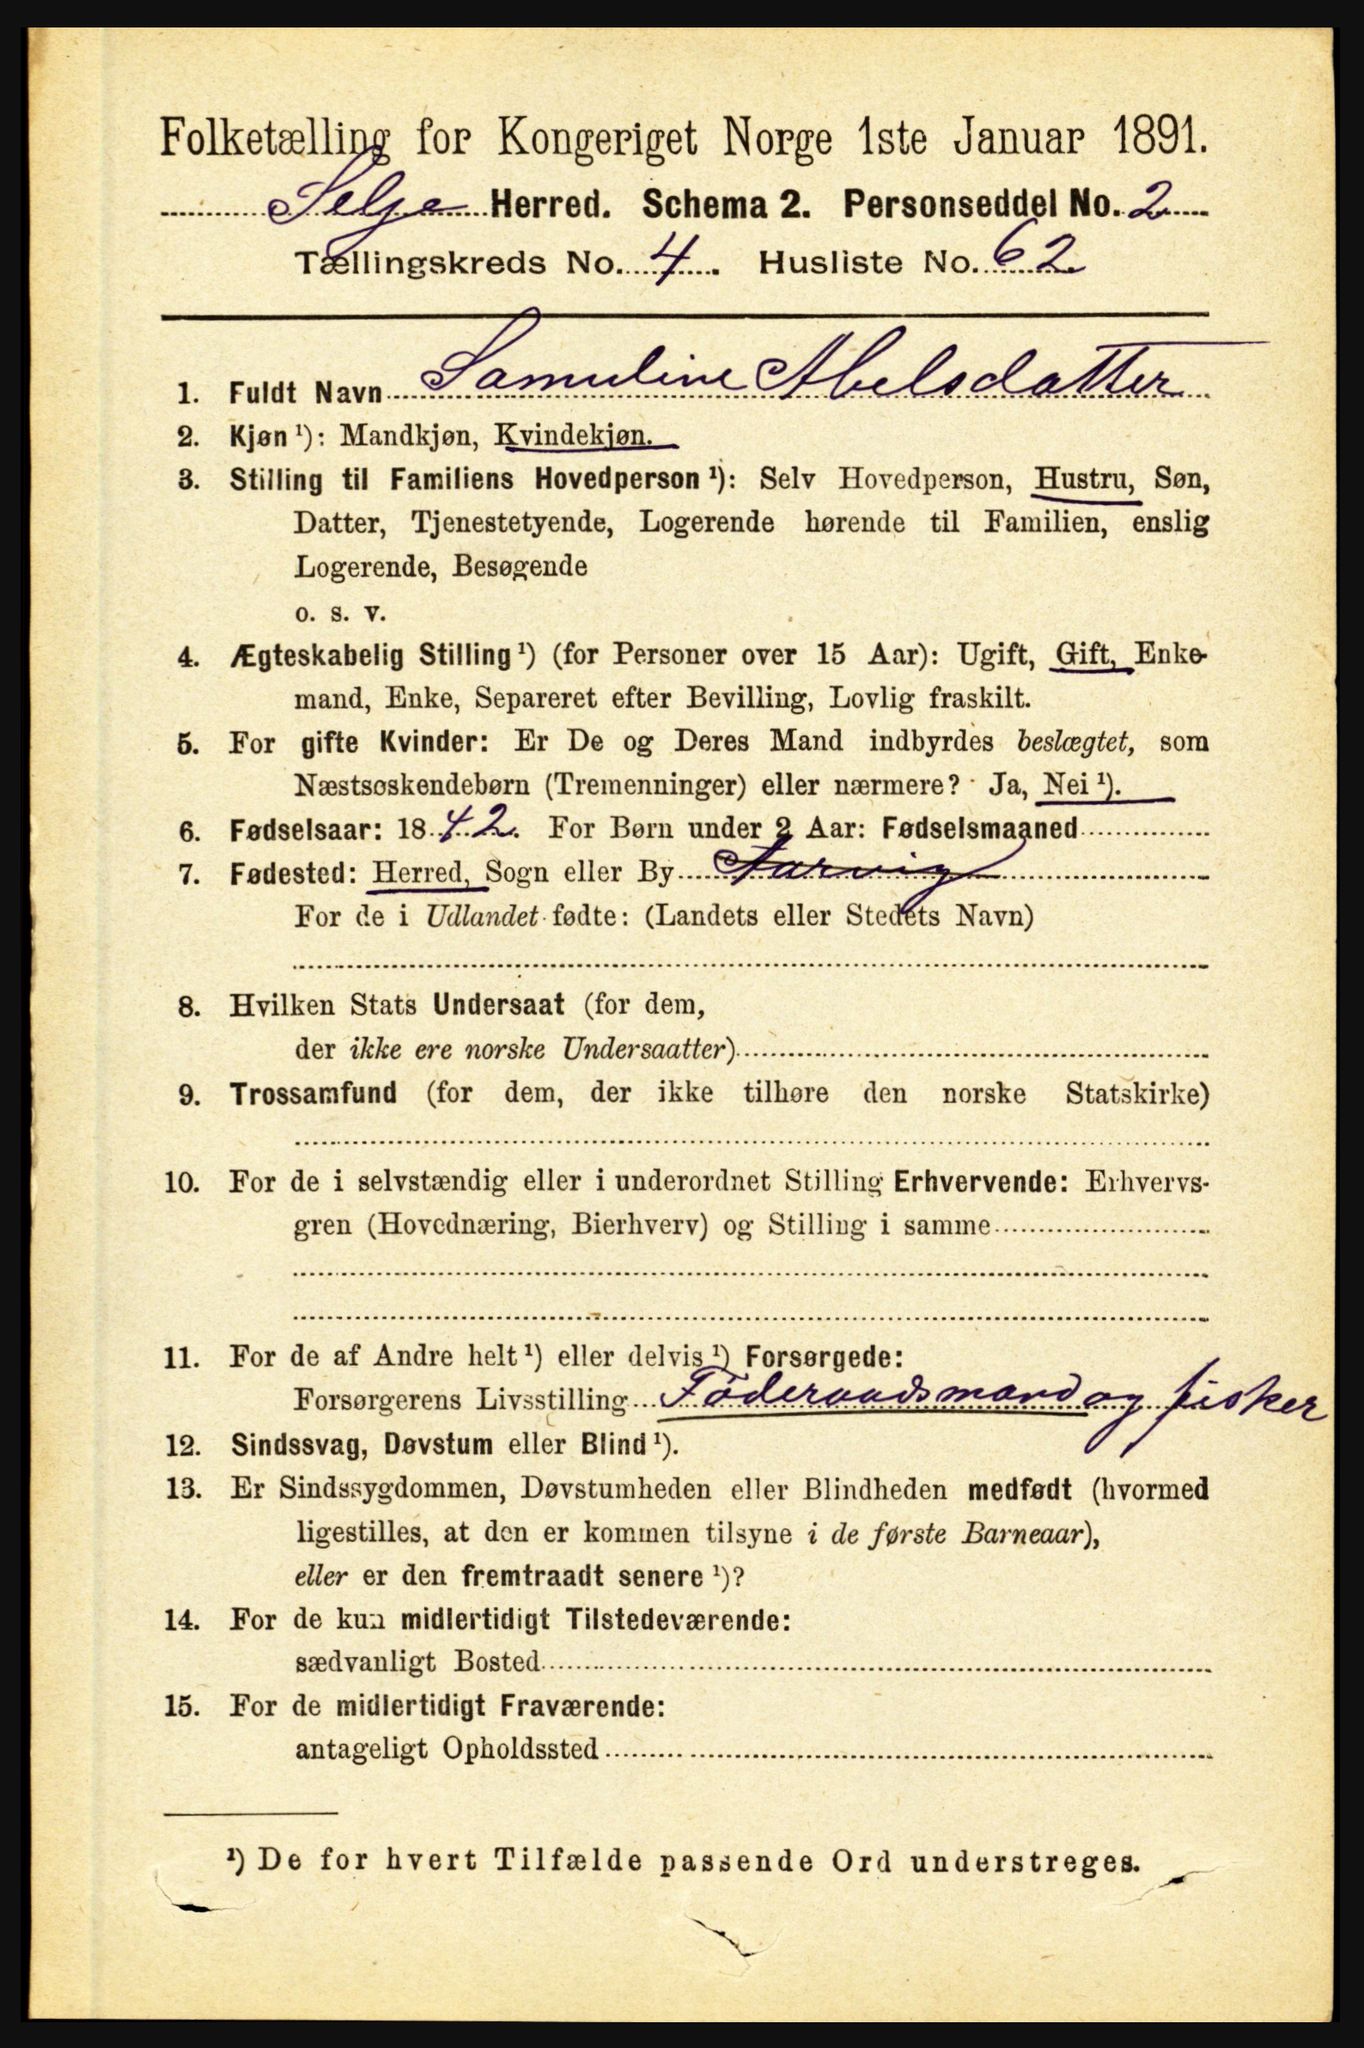 Folketælling for Kongeriget Norge 1ste Januar 1891.
Selje Herred. Schema 2. Personseddel No. 2
Tællingskreds No. 4. Husliste No. 62
1. Fuldt Navn Samuline Abelsdatter
2. Kjøn ¹): Mandkjøn, Kvindekjøn.
3. Stilling til Familiens Hovedperson ¹): Selv Hovedperson, Hustru, Søn,
Datter, Tjenestetyende, Logerende hørende til Familien, enslig
Logerende, Besøgende
o. s. v.
4. Ægteskabelig Stilling ¹) (for Personer over 15 Aar): Ugift, Gift, Enke-
mand, Enke, Separeret efter Bevilling, Lovlig fraskilt.
5. For gifte Kvinder: Er De og Deres Mand indbyrdes beslægtet, som
Næstsøskendebørn (Tremenninger) eller nærmere? Ja, Nei ¹).
6. Fødselsaar: 1842. For Børn under 2 Aar: Fødselsmaaned
7. Fødested: Herred, Sogn eller By Aarvig
For de i Udlandet fødte: (Landets eller Stedets Navn)
8. Hvilken Stats Undersaat (for dem,
der ikke ere norske Undersaatter)
9. Trossamfund (for dem, der ikke tilhøre den norske Statskirke)
10. For de i selvstændig eller i underordnet Stilling Erhvervende: Erhvervs-
gren (Hovednæring, Bierhverv) og Stilling i samme
11. For de af Andre helt ¹) eller delvis ¹) Forsørgede:
Forsørgerens Livsstilling Föderaadsmand og fisker
12. Sindssvag, Døvstum eller Blind ¹).
13. Er Sindssygdommen, Døvstumheden eller Blindheden medfødt (hvormed
ligestilles, at den er kommen tilsyne i de første Barneaar),
eller er den fremtraadt senere ¹)?
14. For de kun midlertidigt Tilstedeværende:
sædvanligt Bosted
15. For de midlertidigt Fraværende:
antageligt Opholdssted
¹) De for hvert Tilfælde passende Ord understreges.